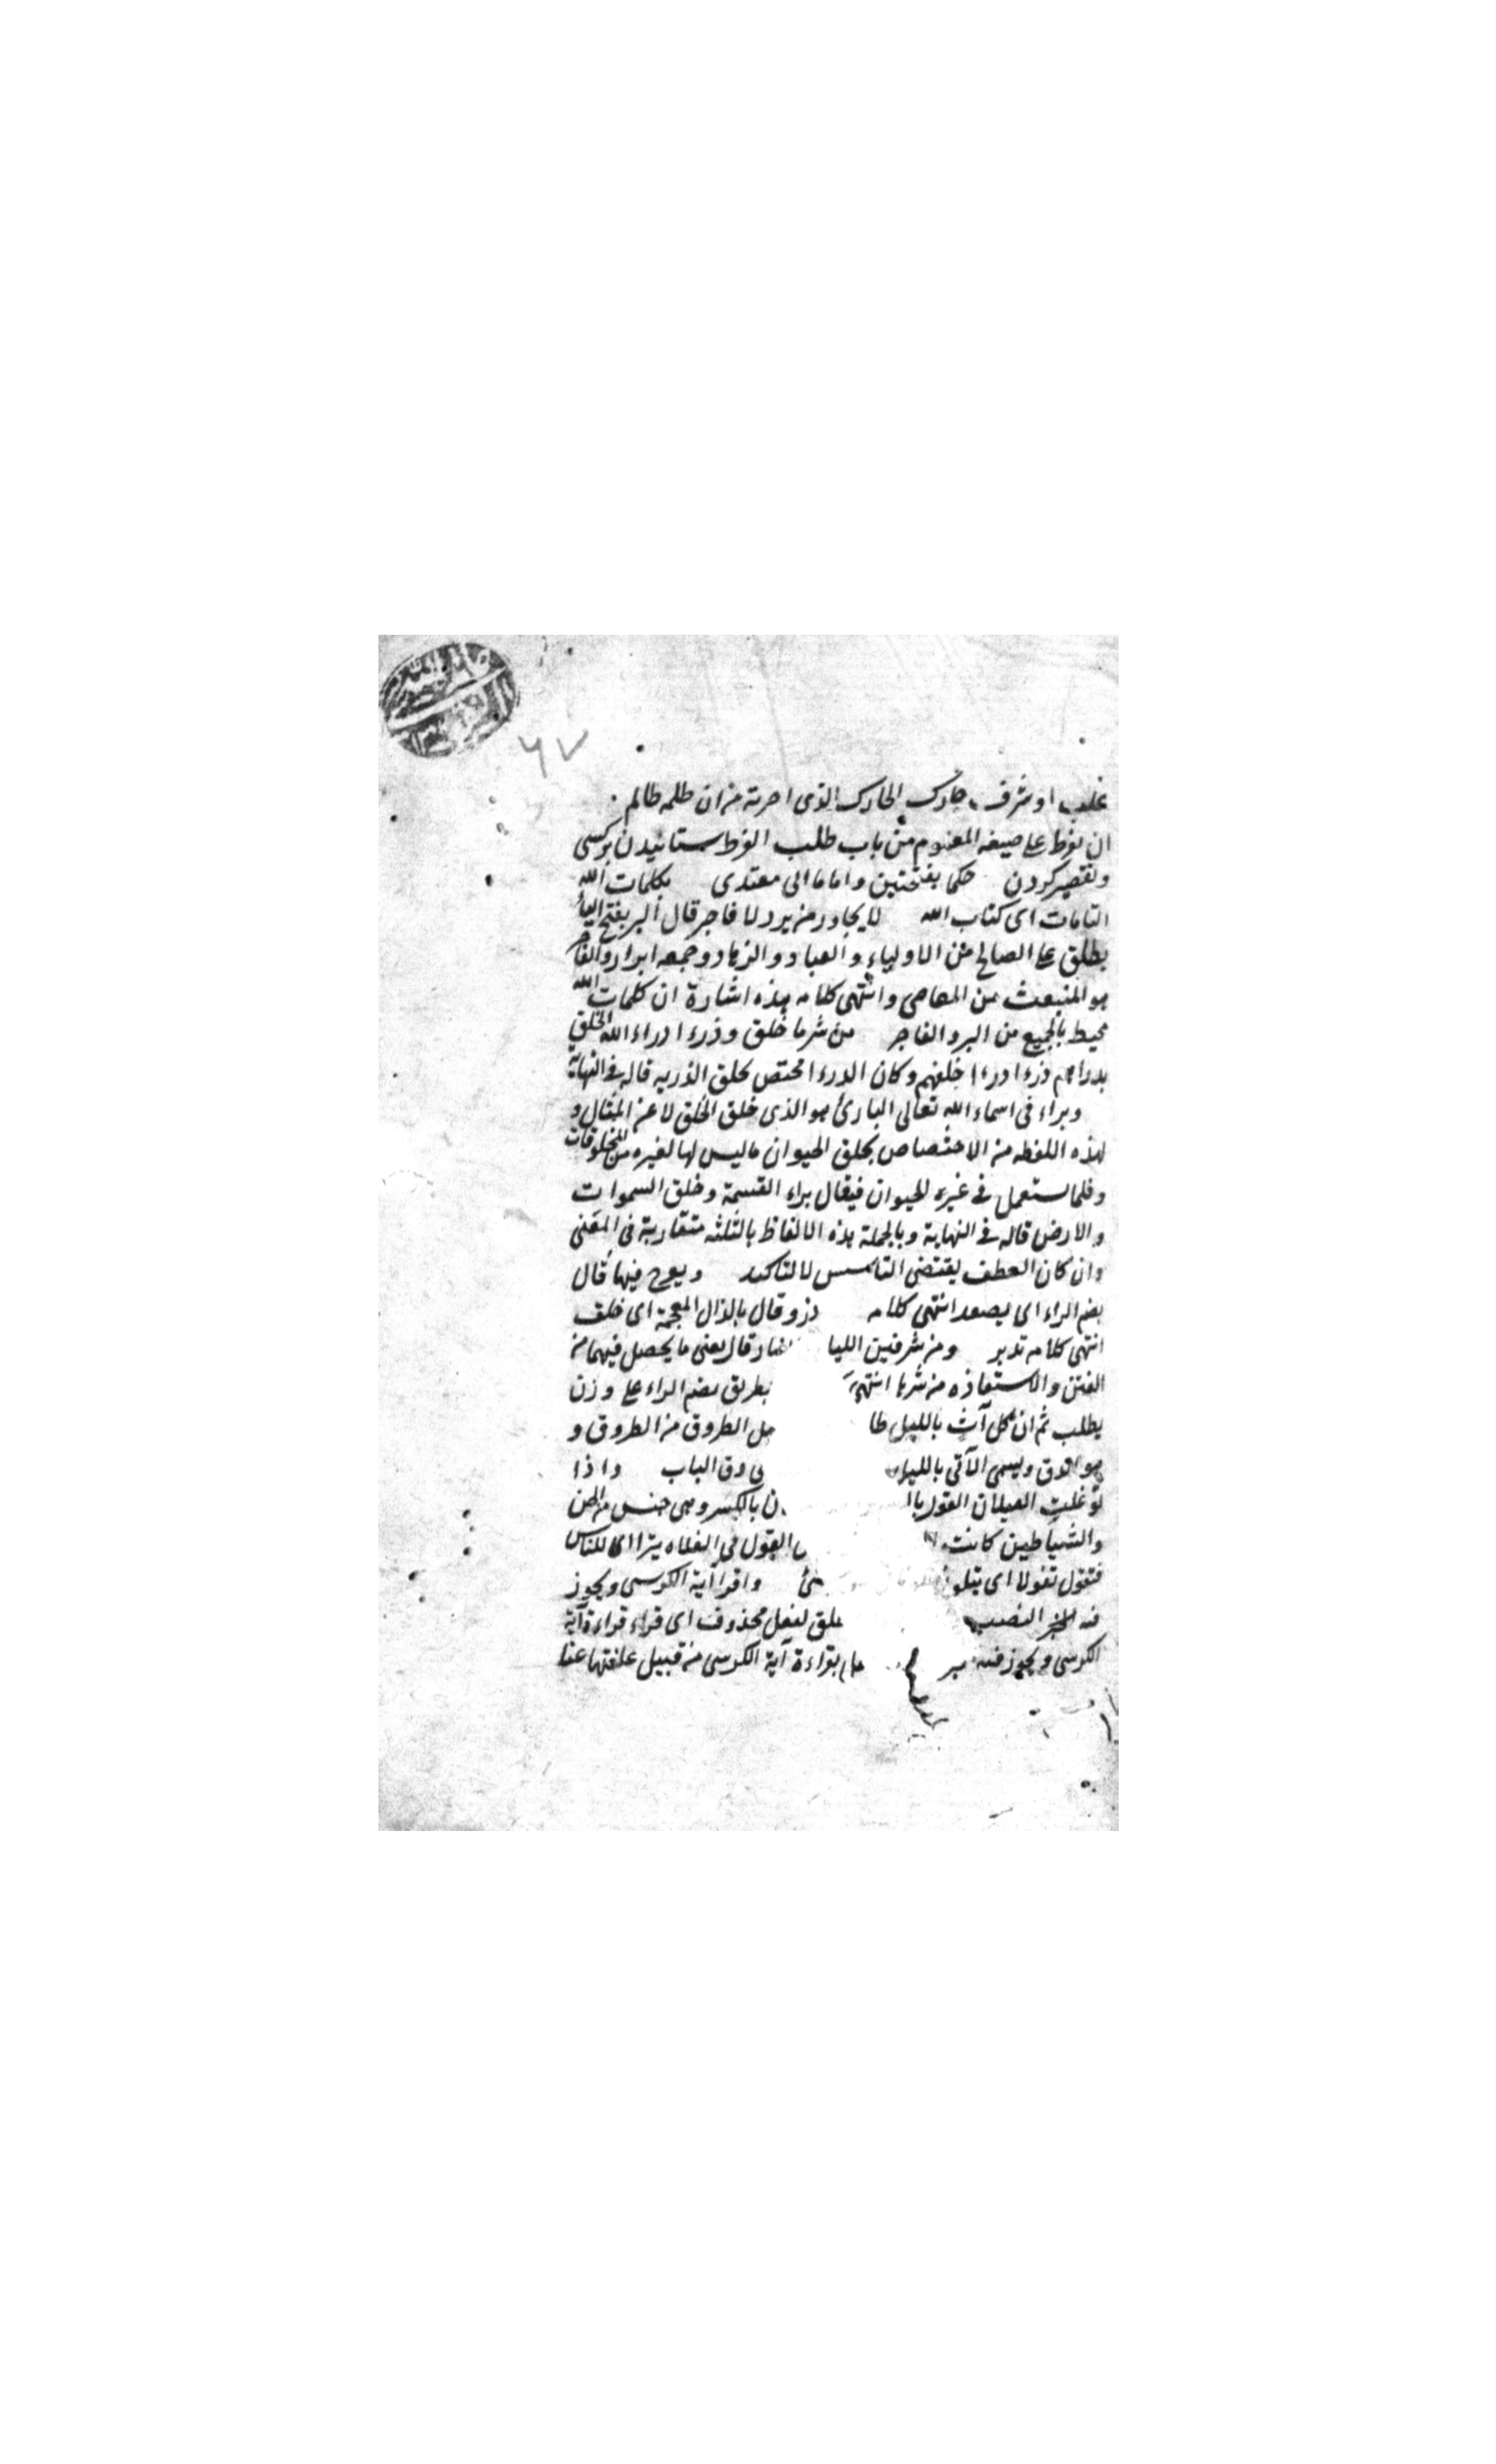 ٦٧
غلب او شرف جارك الجارك الذى اجرته من ان ظلمه ظالم
ان يفرط على صيغه المعلوم من باب طلب الفرط ستانيدن بركسى
وتقصير كردن حكما بفتحتين واماما اى معتدى بكلمات الله
التامات اى كتاب الله لا يجاوزهن بر ولا فاجر قال البر بفتح الباء
يطلق على الصالح من الاولياء والعباد والزهاد وجمعه ابرار والفاجر
هو المنبعث من المعاصى وانتهى كلامه هذه اشارة ان كلمات الله
محيط بالجميع من البر والفاجر من شر ما خلق وذرء اذراء الله الخلق
يذراهم ذرءا اذا خلقهم وكان الذرء مختص بخلق الذريه قاله فى النهاية
وبراء فى اسماء الله تعالى البارئ هو الذى خلق الخلق لا عن المثال و
لهذه اللفظه من الاختصاص بخلق الحيوان ما ليس لها لغيره من المخلوقات
وقلما يستعمل فى غير الحيوان فيقال براء القسمة وخلق السموات
والارض قاله فى النهاية وبالجملة هذه الالفاظ بالثلثه متقاربة فى المعنى
وان كان العطف يقتضى التاسيس لا التاكيد ويعرج فيها قال
بضم الراء اى يصعد انتهى كلامه ذرء وقال بالذال المعجمة اى خلق
انتهى كلامه تدبر ومن شر فتن الليا قال يعنى ما يحصل فيهما من
الفتن والاستعاذه من شرها انتهى يطرق بضم الراء على وزن
يطلب ثم ان كل آت بالليل طا الطروق من الطروق و
هو الدق ويسمى الآتى بالليل دق الباب واذا
تغولت الغيلان الغول با ن بالكسر وهى جنس من الجن
والشياطين كانت الغول فى الفلاة يترااى للناس
فتغول تغولا اى يتلون واقرا آية الكرسى ويجوز
فيه النصب علق لفعل محذوف اى قراء قراءة آية
الكرسى ويجوز فيه بقراءة آية الكرسى من قبيل علفتها